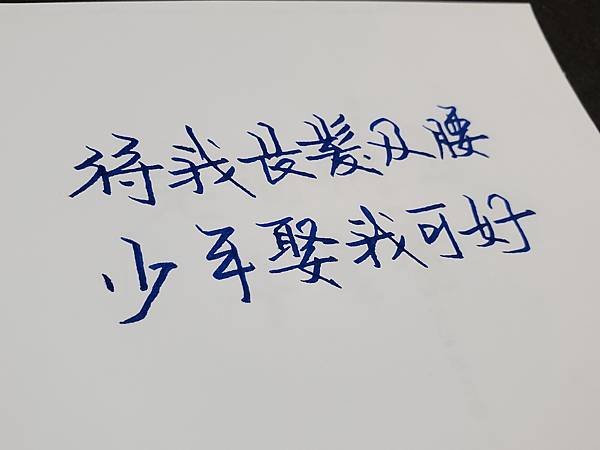 待我長髮及腰
少年娶我可好